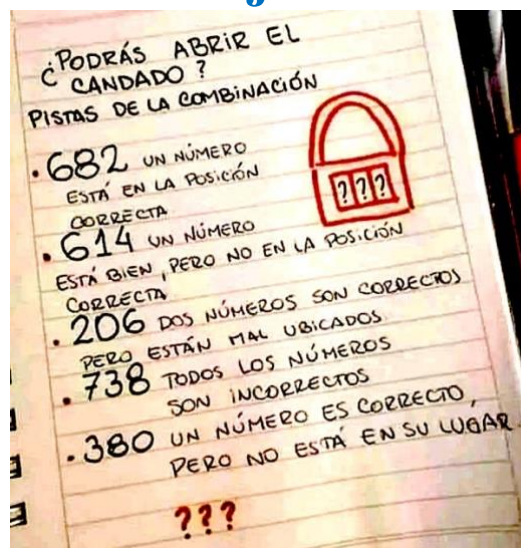 ¿PODRÁS ABRIR EL
CANDADO?
PISTAS DE LA COMBINACIÓN
.682 UN NÚMERO
ESTÁ EN LA POSICIÓN
CORRECTA
.614 UN NÚMERO
ESTÁ BIEN, PERO NO EN LA POSICIÓN
CORRECTA
.206 DOS NÚMEROS SON CORRECTOS
PERO ESTÁN MAL UBICADOS
.738 TODOS LOS NÚMEROS
SON INCORRECTOS
.380 UN NÚMERO ES CORRECTO,
PERO NO ESTÁ EN SU LUGAR.
???
???